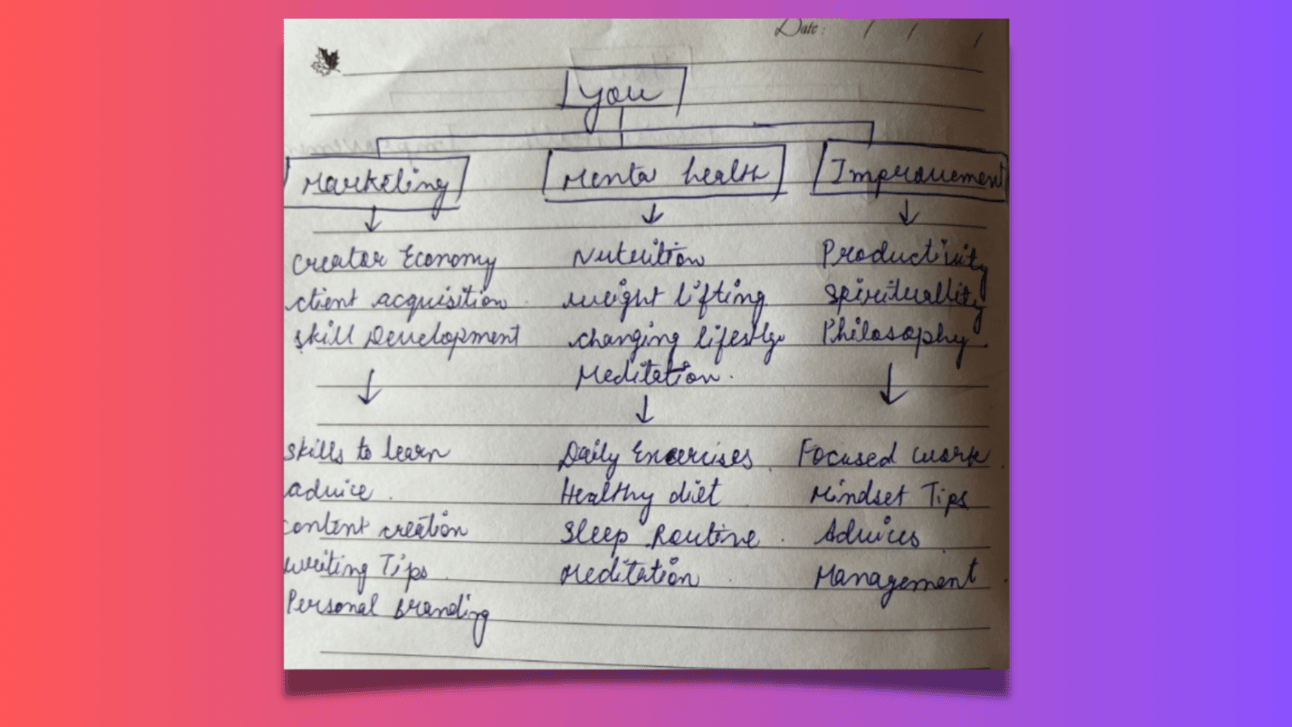 Date : / / /
You
Marketing
Menta health
Improvement
Creator Economy
client acquisition
skill Development
Nutrition
weight lifting
changing lifestyle
Meditation.
Productivity
Spirituallity
Philosophy.
skills to learn
advice.
content creation
writing Tips
Personal Branding
Daily Excercises.
Healthy diet
Sleep Routine.
Meditation
Focused work.
Mindset Tips
Advices
Management.